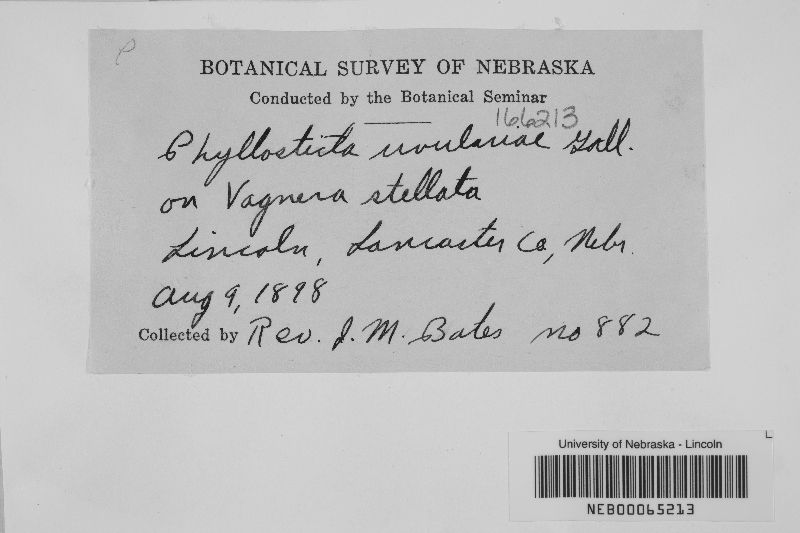 P
BOTANICAL SURVEY OF NEBRASKA
Conducted by the Botanical Seminar
166213
Phyllosticta uvulariae Gall.
on Vagnera stellata
Lincoln, Lancaster Co, Nebr.
Aug 9, 1898
Collected by Rev. J. M. Bates no 882
University of Nebraska - Lincoln
NEB00065213